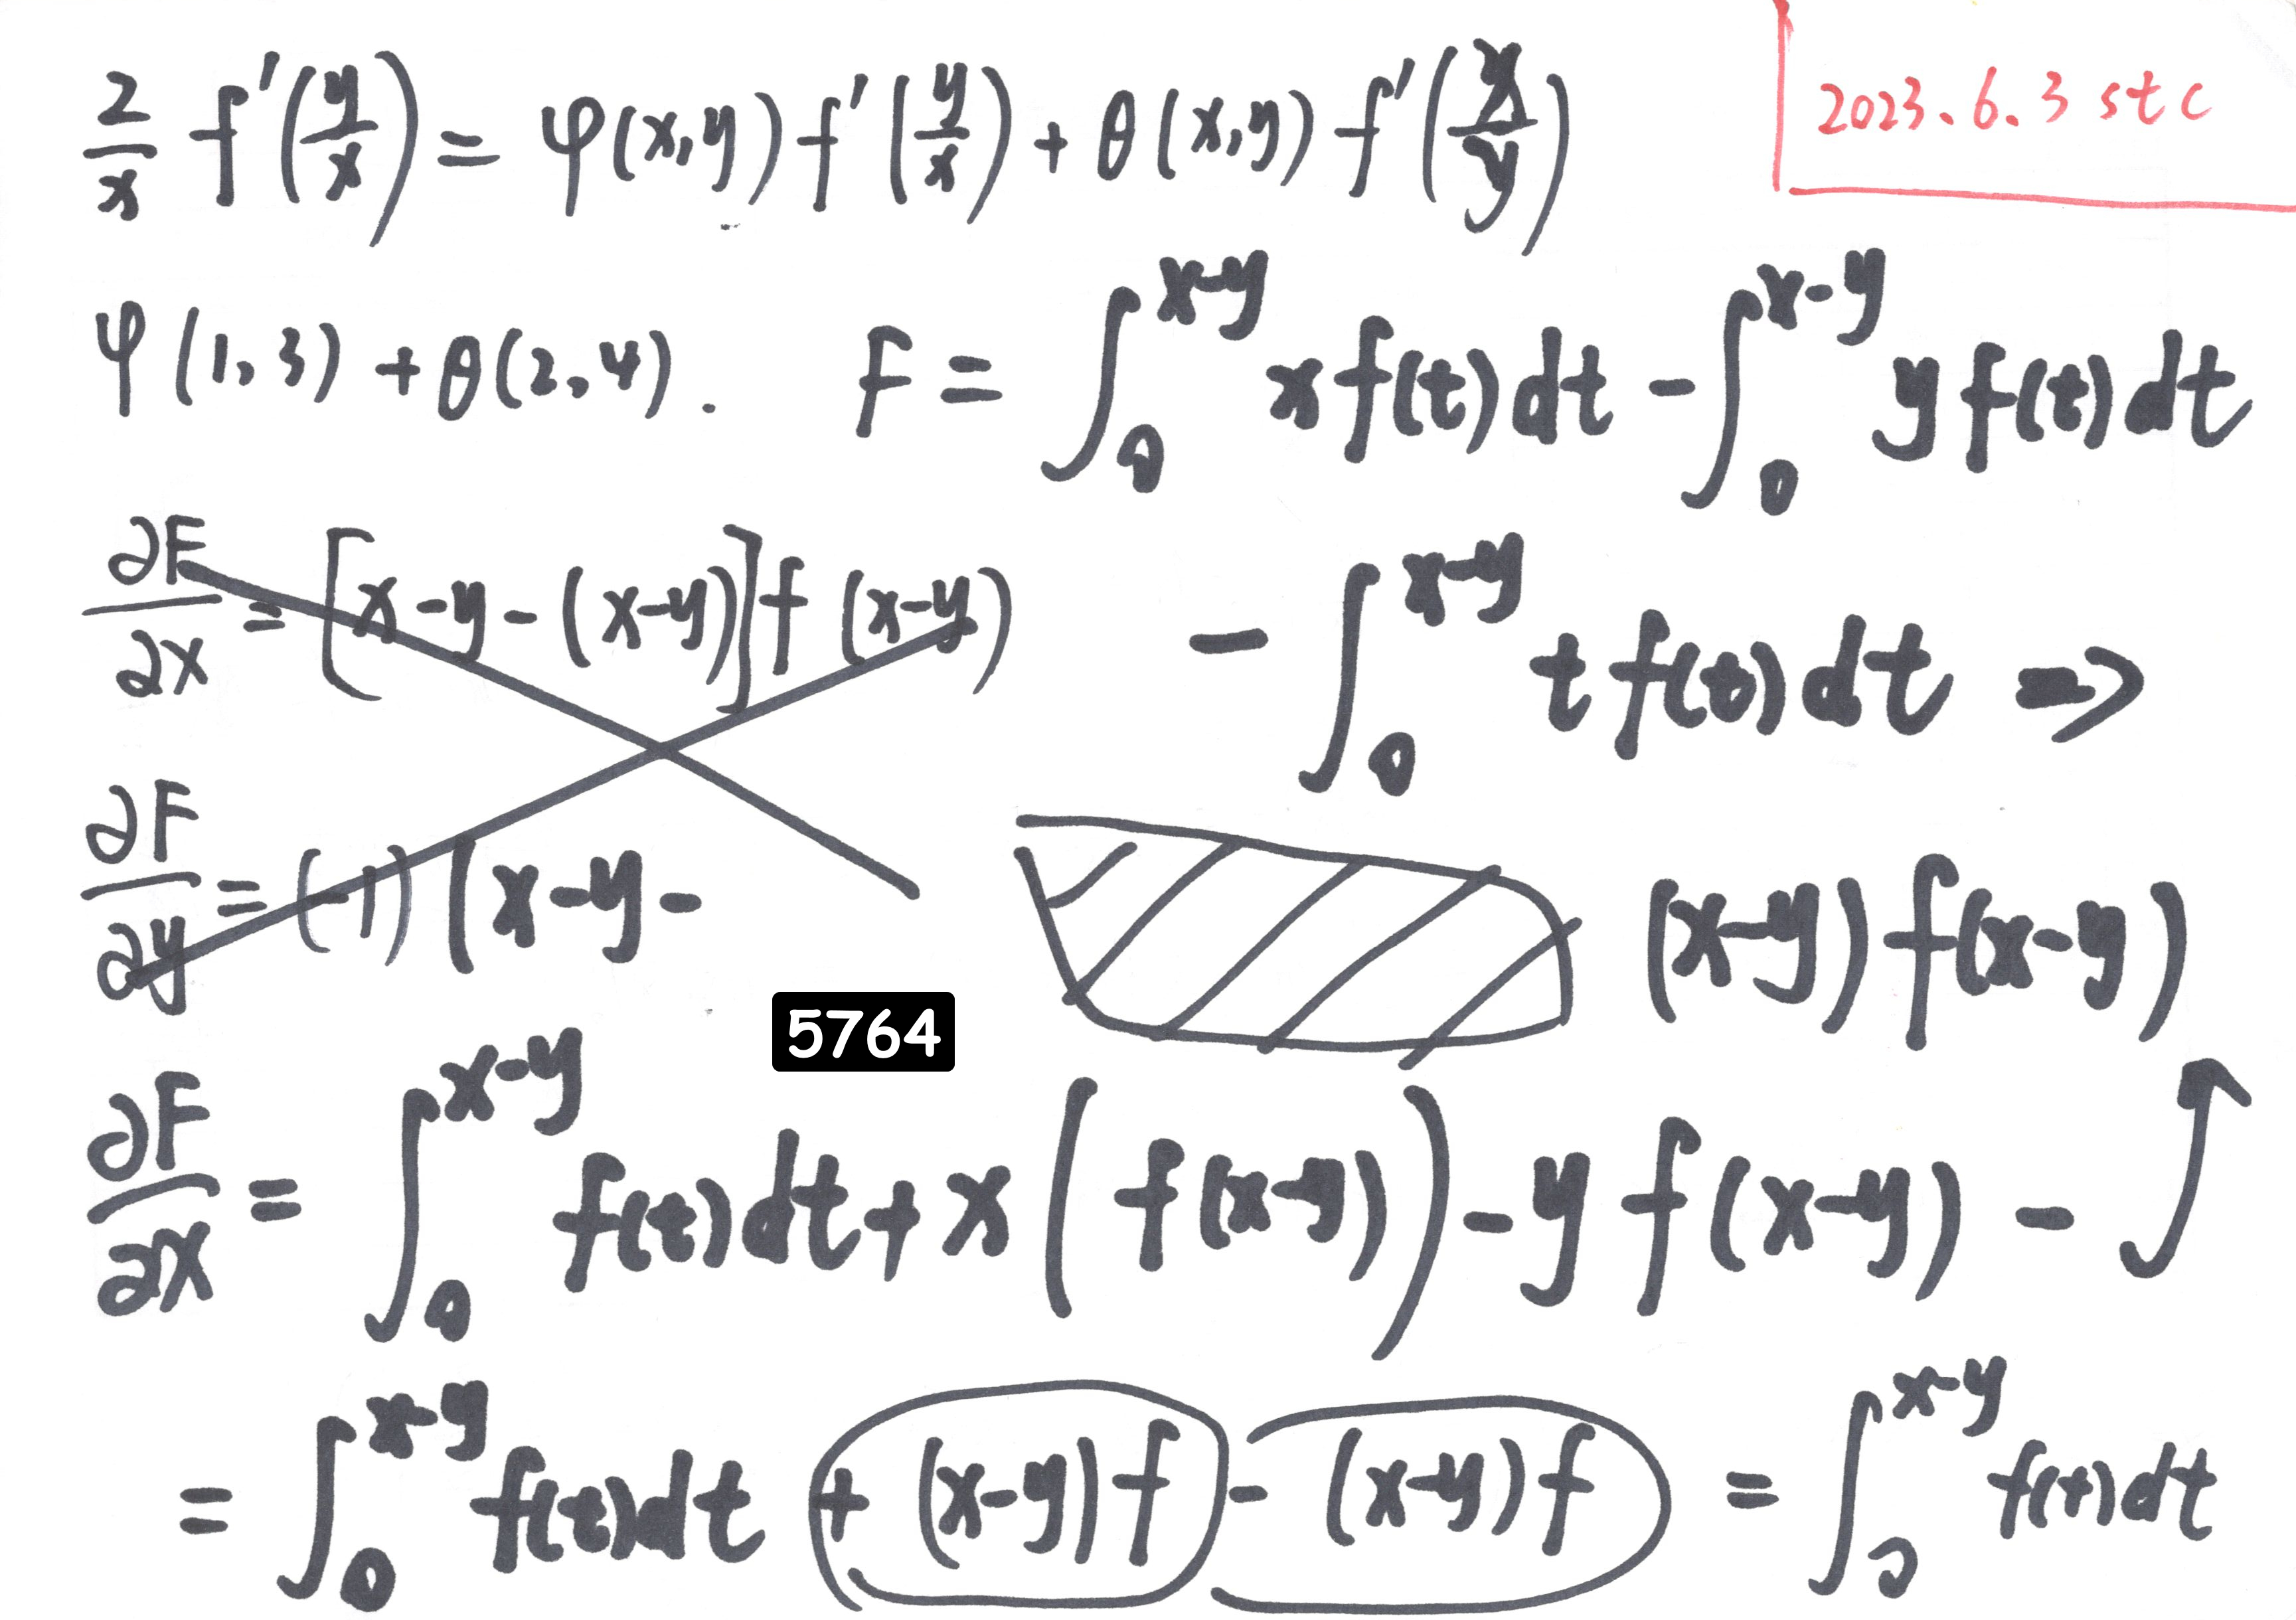 2023.6.3 stc
2/x f'(y/x) = φ(x,y) f'(y/x) + θ(x,y) f'(x/y)
φ(1,3) + θ(2,4). F = ∫₀^{x-y} x f(t) dt - ∫₀^{x-y} y f(t) dt
∂F/∂x = [x-y-(x-y)] f (x-y)
- ∫₀^{x-y} t f(t) dt ⇒
∂F/∂y = (-1) (x-y-
(x-y) f(x-y)
5764
∂F/∂x = ∫₀^{x-y} f(t) dt + x ( f(x-y)) - y f(x-y) -
= ∫₀^{x-y} f(t) dt + (x-y) f - (x-y) f = ∫₀^{x-y} f(t) dt